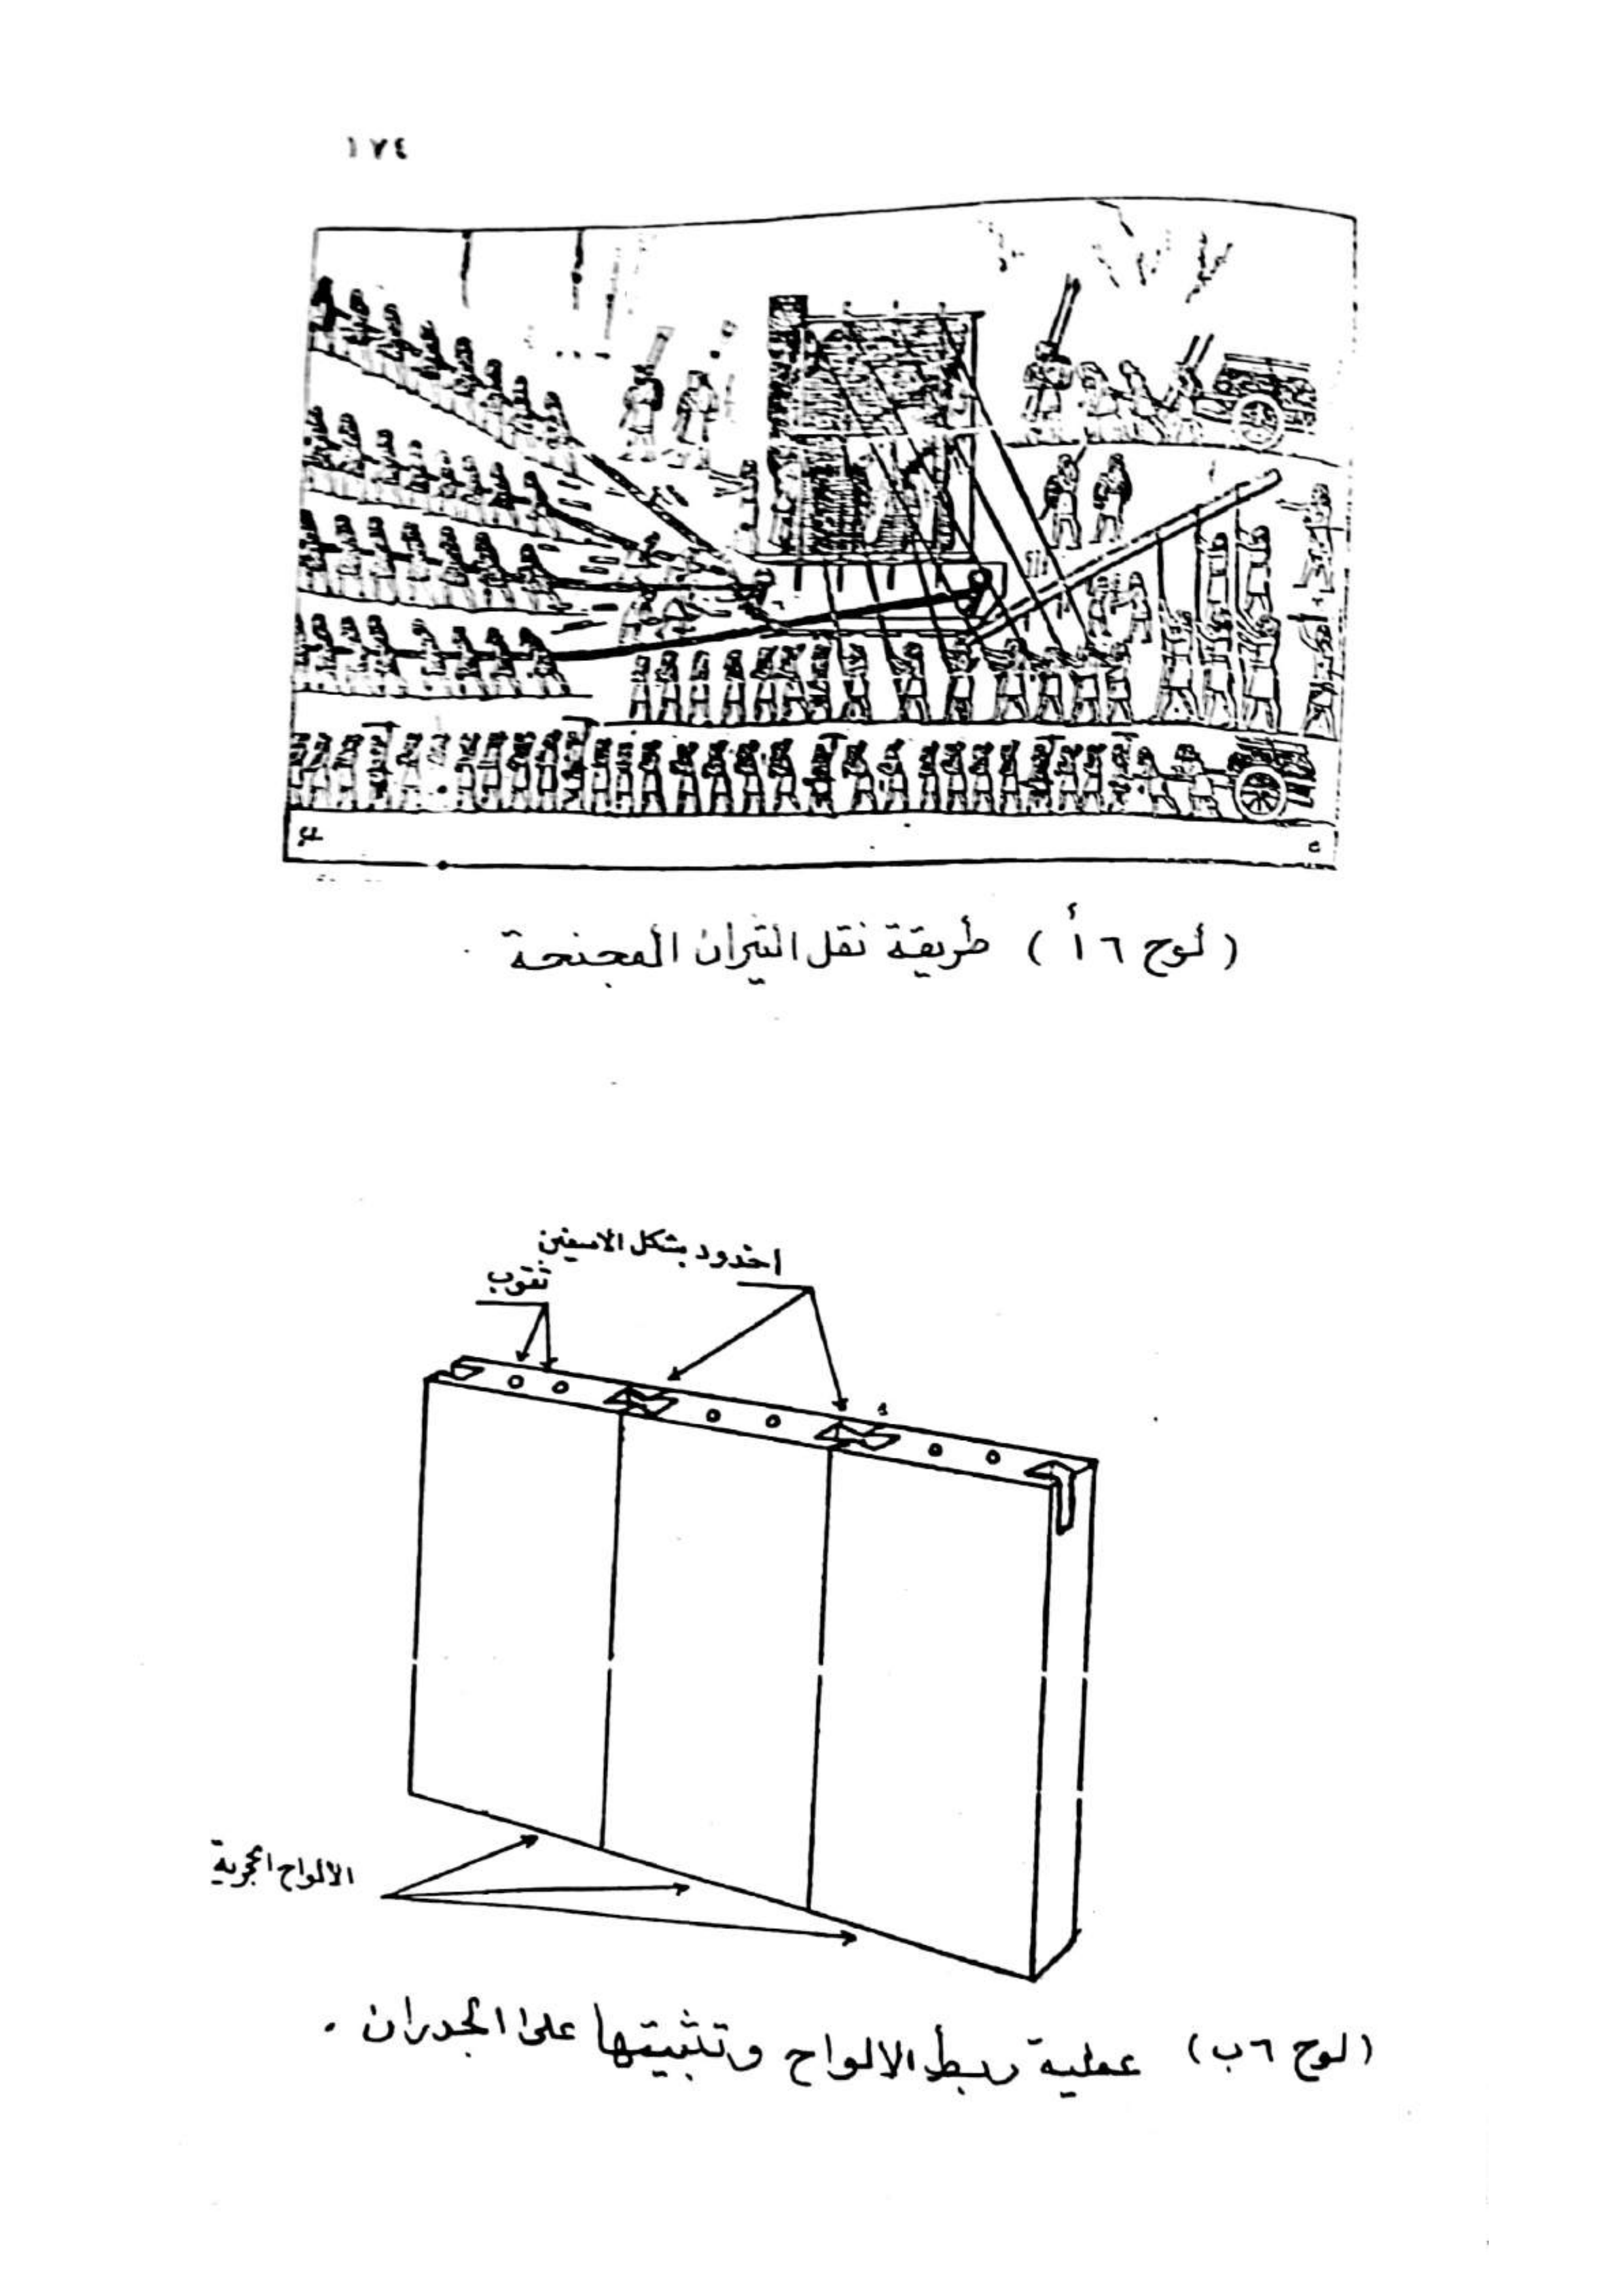 ١٧٤
( لوح ٦ أ ) طريقة نقل الثيران المجنحة .
اخدود بشكل الاسفين
ثقوب
الالواح الحجرية
( لوح ٦ب ) عملية ربط الالواح وتثبيتها على الجدران .